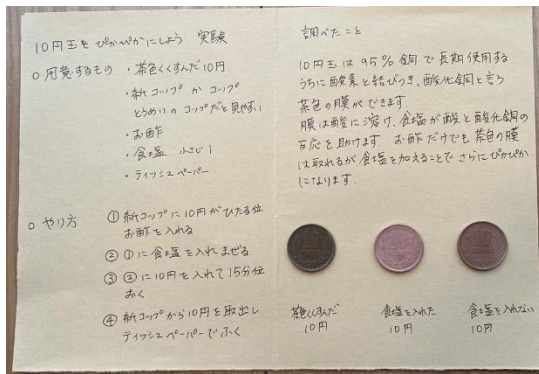 10円玉をぴかぴかにしよう 実験
○用意するもの ・茶色くくすんだ10円
・紙コップ か コップ
とうめいの コップだと見やすい
・お酢
・食塩 小さじ1
・ティッシュペーパー
○ やり方 ①紙コップに10円がひたる位
お酢を入れる
②①に食塩を入れまぜる
③②に10円を入れて15分位
おく
④紙コップから10円を取出し
ティッシュペーパーでふく
調べたこと
10円玉は95%銅で長期使用する
うちに酸素と結びつき、酸化銅と言う
茶色の膜ができます。
膜は酸に溶け、食塩が酸と酸化銅の
反応を助けます。お酢だけでも茶色の膜
は取れるが食塩を加えることでさらにぴかぴか
になります。
茶色くくすんだ
10円
食塩を入れた
10円
食塩を入れない
10円